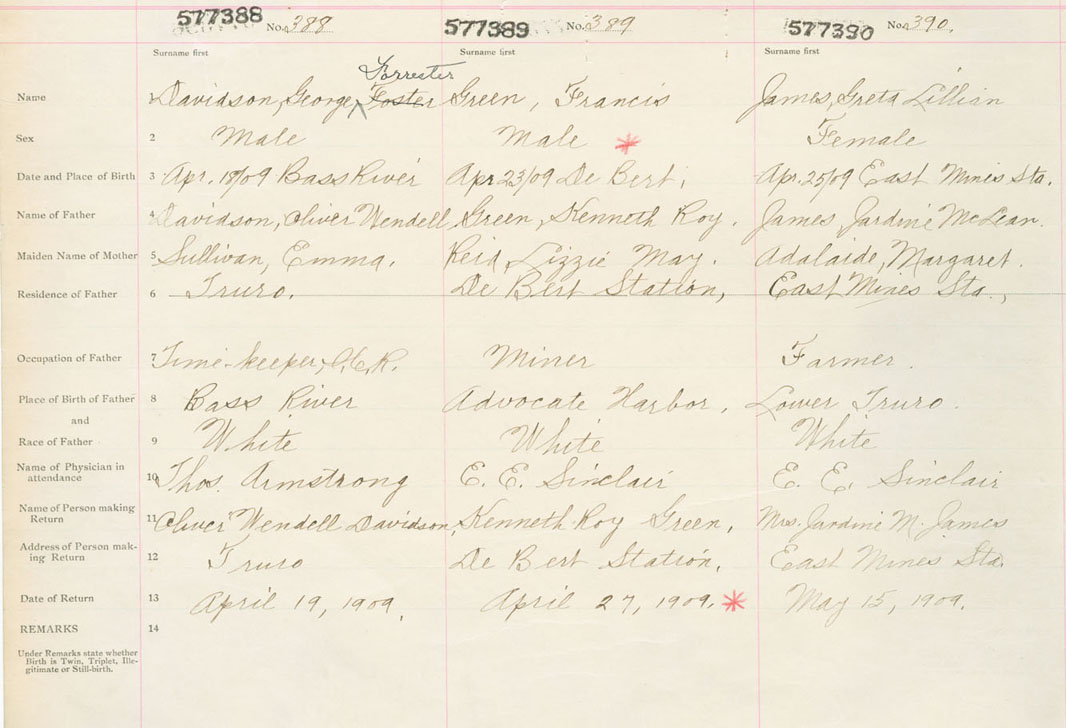 577388 No. 388 577389 No. 389 577390 No. 390.
Surname first Surname first Surname first
Forrester
Name 1 Davidson, George, Foster Green, Francis James, Greta Lillian
Sex 2 Male Male * Female
Date and Place of Birth 3 Apr. 18/09 Bass River Apr 23/09 De Bert, Apr. 25/09 East Mines Sta.
Name of Father 4 Davidson, Oliver Wendell Green, Kenneth Roy. James Jardine McLean.
Maiden Name of Mother 5 Sullivan, Emma. Reid, Lizzie May. Adalaide, Margaret.
Residence of Father 6 Truro. De Bert Station, East Mines Sta.,
Occupation of Father 7 Time-keeper, I.C.R. Miner Farmer.
Place of Birth of Father 8 Bass River Advocate Harbor, Lower Truro.
and
Race of Father 9 White White White
Name of Physician in
attendance 10 Thos. Armstrong E. E. Sinclair E. E. Sinclair
Name of Person making
Return 11 Oliver Wendell Davidson, Kenneth Roy Green, Mrs. Jardine M. James
Address of Person mak-
ing Return 12 Truro De Bert Station, East Mines Sta.
Date of Return 13 April 19, 1909, April 27, 1909. * May 15, 1909.
REMARKS 14
Under Remarks state whether
Birth is Twin, Triplet, Ille-
gitimate or Still-birth.